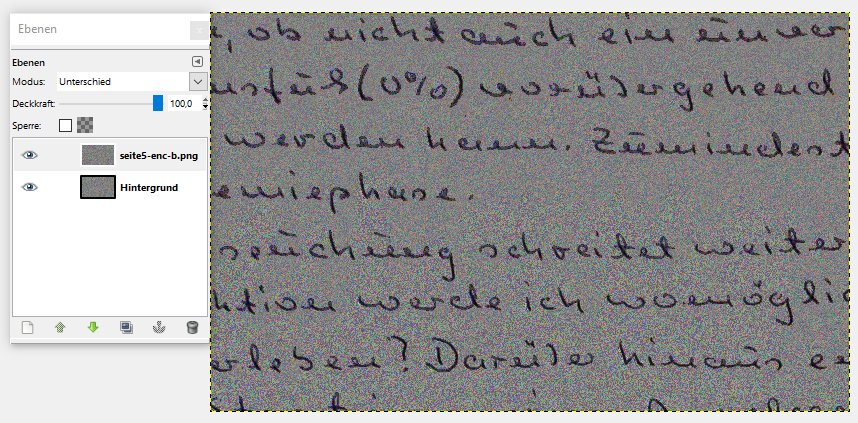 Ebenen
Ebenen
Modus: Unterschied
Deckkraft: 100,0
Sperre:
seite5-enc-b.png
Hintergrund
, ob nicht auch ein
(0%) vorübergehend
werden kann. Zumindest
emiephase.
seuchung schreitet weiter
ktion werde ich womöglic
erleben? Darüber hinaus